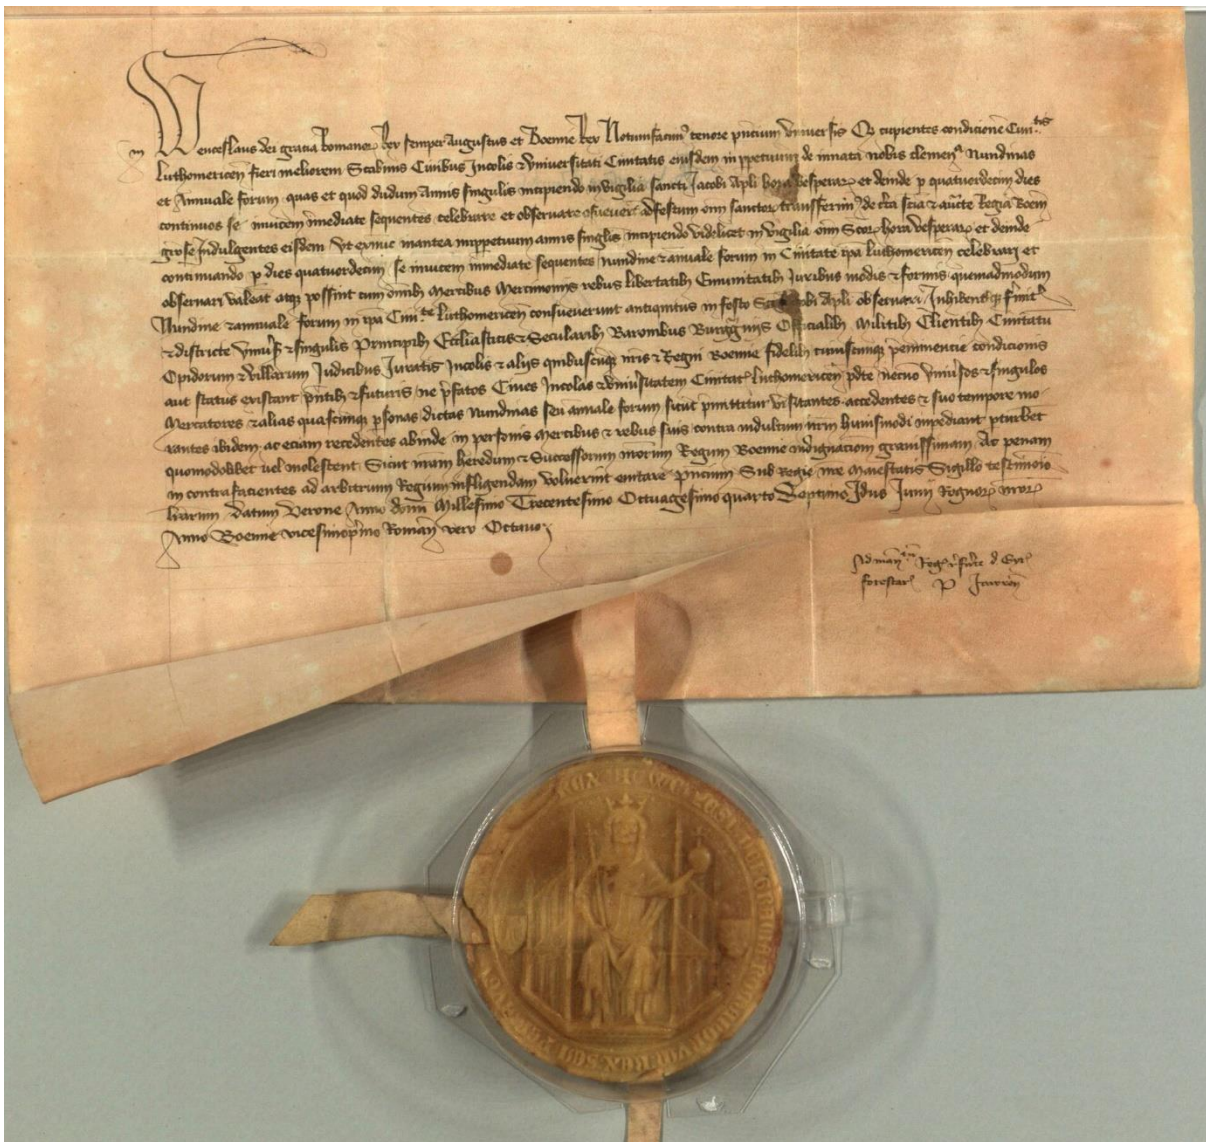 Wenceslaus dei gracia Romanoꝝ Rex semper augustus et Boemie Rex Notumfacimꝰ tenore pñcium vniuersis Qꝫ cupientes condicionē Ciui.tis
in Luthomericeñ fieri meliorem Scabinis Ciuibus Incolis ⁊ vniuersitati Ciuitatis eiusdem in ppetuum de innata nobis clemeñᵃ Nundinas
et Annuale forum quas et quod dudum Annis singulis incipiendo in vigilia sancti Jacobi Apli hora vesperaꝝ et deinde p quatuordecim dies
continuos se inuicem inmediate sequentes celebrare et obseruare ad festum oīm sanctoꝝ transferimꝰ de cta scia ⁊ aucte Regia Boem
Indulgentes eisdem Vt exnunc inantea inppetuum annis singlis incipiendo videlicet in vigilia oīm Scoꝝ hora vesperaꝝ et deinde
continuando p dies quatuordecim se inuicem inmediate sequentes nundine ⁊ anuale forum in Ciuitate ipa Luthomericeñ celebrari et
obseruari valeāt atqꝫ possint cum oīnibꝫ Mercibus Mercimonijs rebus libertatibꝫ Emunitatibꝫ Juribus modis ⁊ formis quemadmodum
Nundine ⁊ annuale forum in ipa Ciui.te Luthomericeñ consueuerunt antiquitus in festo Sci Jacobi Apli obseruari Inhibentes fmitꝰ
⁊ districte vniuersis ⁊ singulis Principibꝫ Ecclīasticis ⁊ Secularibꝫ Baronibus Burgᵍuijs Officialibꝫ Militibꝫ Clientibꝫ Ciuitatū
Opidorum ⁊ villarum Judicibus Juratis Incolis ⁊ alijs quibuscūqꝫ nris ⁊ Regni Boemie fidelibꝫ cuiuscūqꝫ peminencie condicionis
aut status existant pñtibꝫ ⁊ futuris ne pfatos Ciues Incolas ⁊ vniuersitatem Ciuitatꝭ Luthomericeñ pdte necno vniuersos ⁊ singulos
Mercatores ⁊ alias quascūqꝫ psonas dictas Nundinas seu annale forum sicut pmittitur visitantes accedentes ⁊ suo tempore mo
rantes ibidem ac eciam recedentes abinde in personis Mercibus ⁊ rebus suis contra indultum nrm huiusmodi inpediant pturbet
quomodolibet uel molestent Sicut nram heredum ⁊ Successorum nrorum Regum Boemie indignacionem grauissimam Ac penam
in contrafacientes ad arbitrium Regum infligendam voluerint euitare Pñcium Sub Regie nre Maiestatis Sigillo testimonio
lrarum Datum Verone Anno dom̄ Millesimo Trecentesimo Octuagesimo quarto Septimo Idus Junij Regnoꝝ nroꝝ
Anno Boemie vicesimopmo Romañ vero Octauo
Ad
forestar P